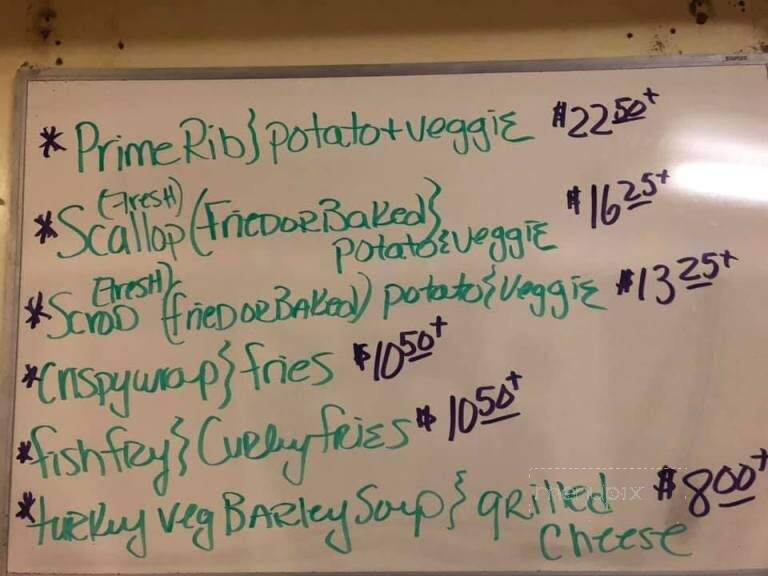 * Prime Rib} potato + veggie $22 50+
(FresH)
* Scallop (Fried or Baked} $16 25+
potato & veggie
(FresH)
* Scrod (fried or BAKed) potato & veggie $13 25+
* Crispy wrap} fries $10 50+
* fish fry} Curly fries $10 50+
* turkey veg BARley Soup} grilled $8 00+
cheese
menupix
STAPLES